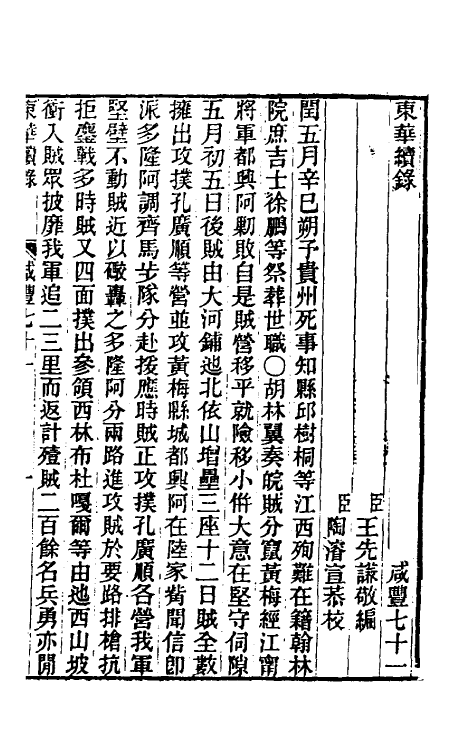 東華續錄 咸豐七十一
臣王先謙敬編
臣陶濬宣恭校
閏五月辛巳朔予貴州死事知縣邱樹桐等江西殉難在籍翰林
院庶吉士徐鵬等祭葬世職○胡林翼奏皖賊分竄黃梅經江甯
將軍都興阿勦敗自是賊營移平就險移小併大意在堅守伺隙
五月初五日後賊由大河鋪迆北依山增壘三座十二日賊全數
擁出攻撲孔廣順等營並攻黃梅縣城都興阿在陸家觜聞信卽
派多隆阿調齊馬步隊分赴援應時賊正攻撲孔廣順各營我軍
堅壁不動賊近以礮轟之多隆阿分兩路進攻賊於要路排槍抗
拒鏖戰多時賊又四面撲出參領西林布杜嘎爾等由迆西山坡
衝入賊眾披靡我軍追二三里而返計殪賊二百餘名兵勇亦閒
東華續錄 咸豐七十一 一